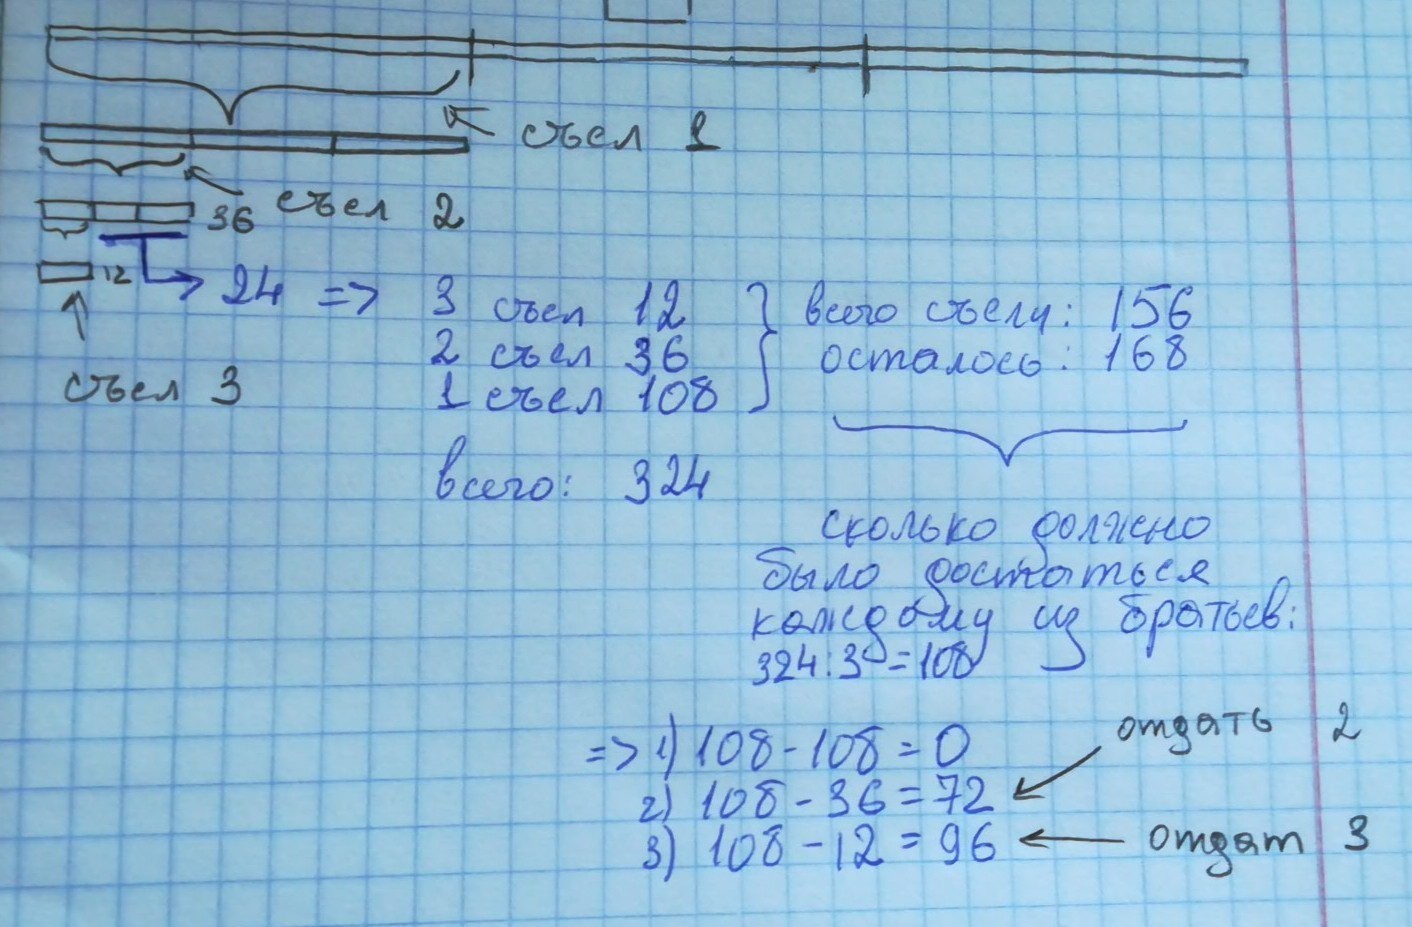 съел 1
съел 2
36
12
24 => 3 съел 12
2 съел 36
1 съел 108
съел 3
всего съели: 156
осталось: 168
всего: 324
сколько должно
было достаться
каждому из братьев:
324:3 = 108
=> 1) 108 - 108 = 0
2) 108 - 36 = 72
3) 108 - 12 = 96
отдать 2
отдат 3